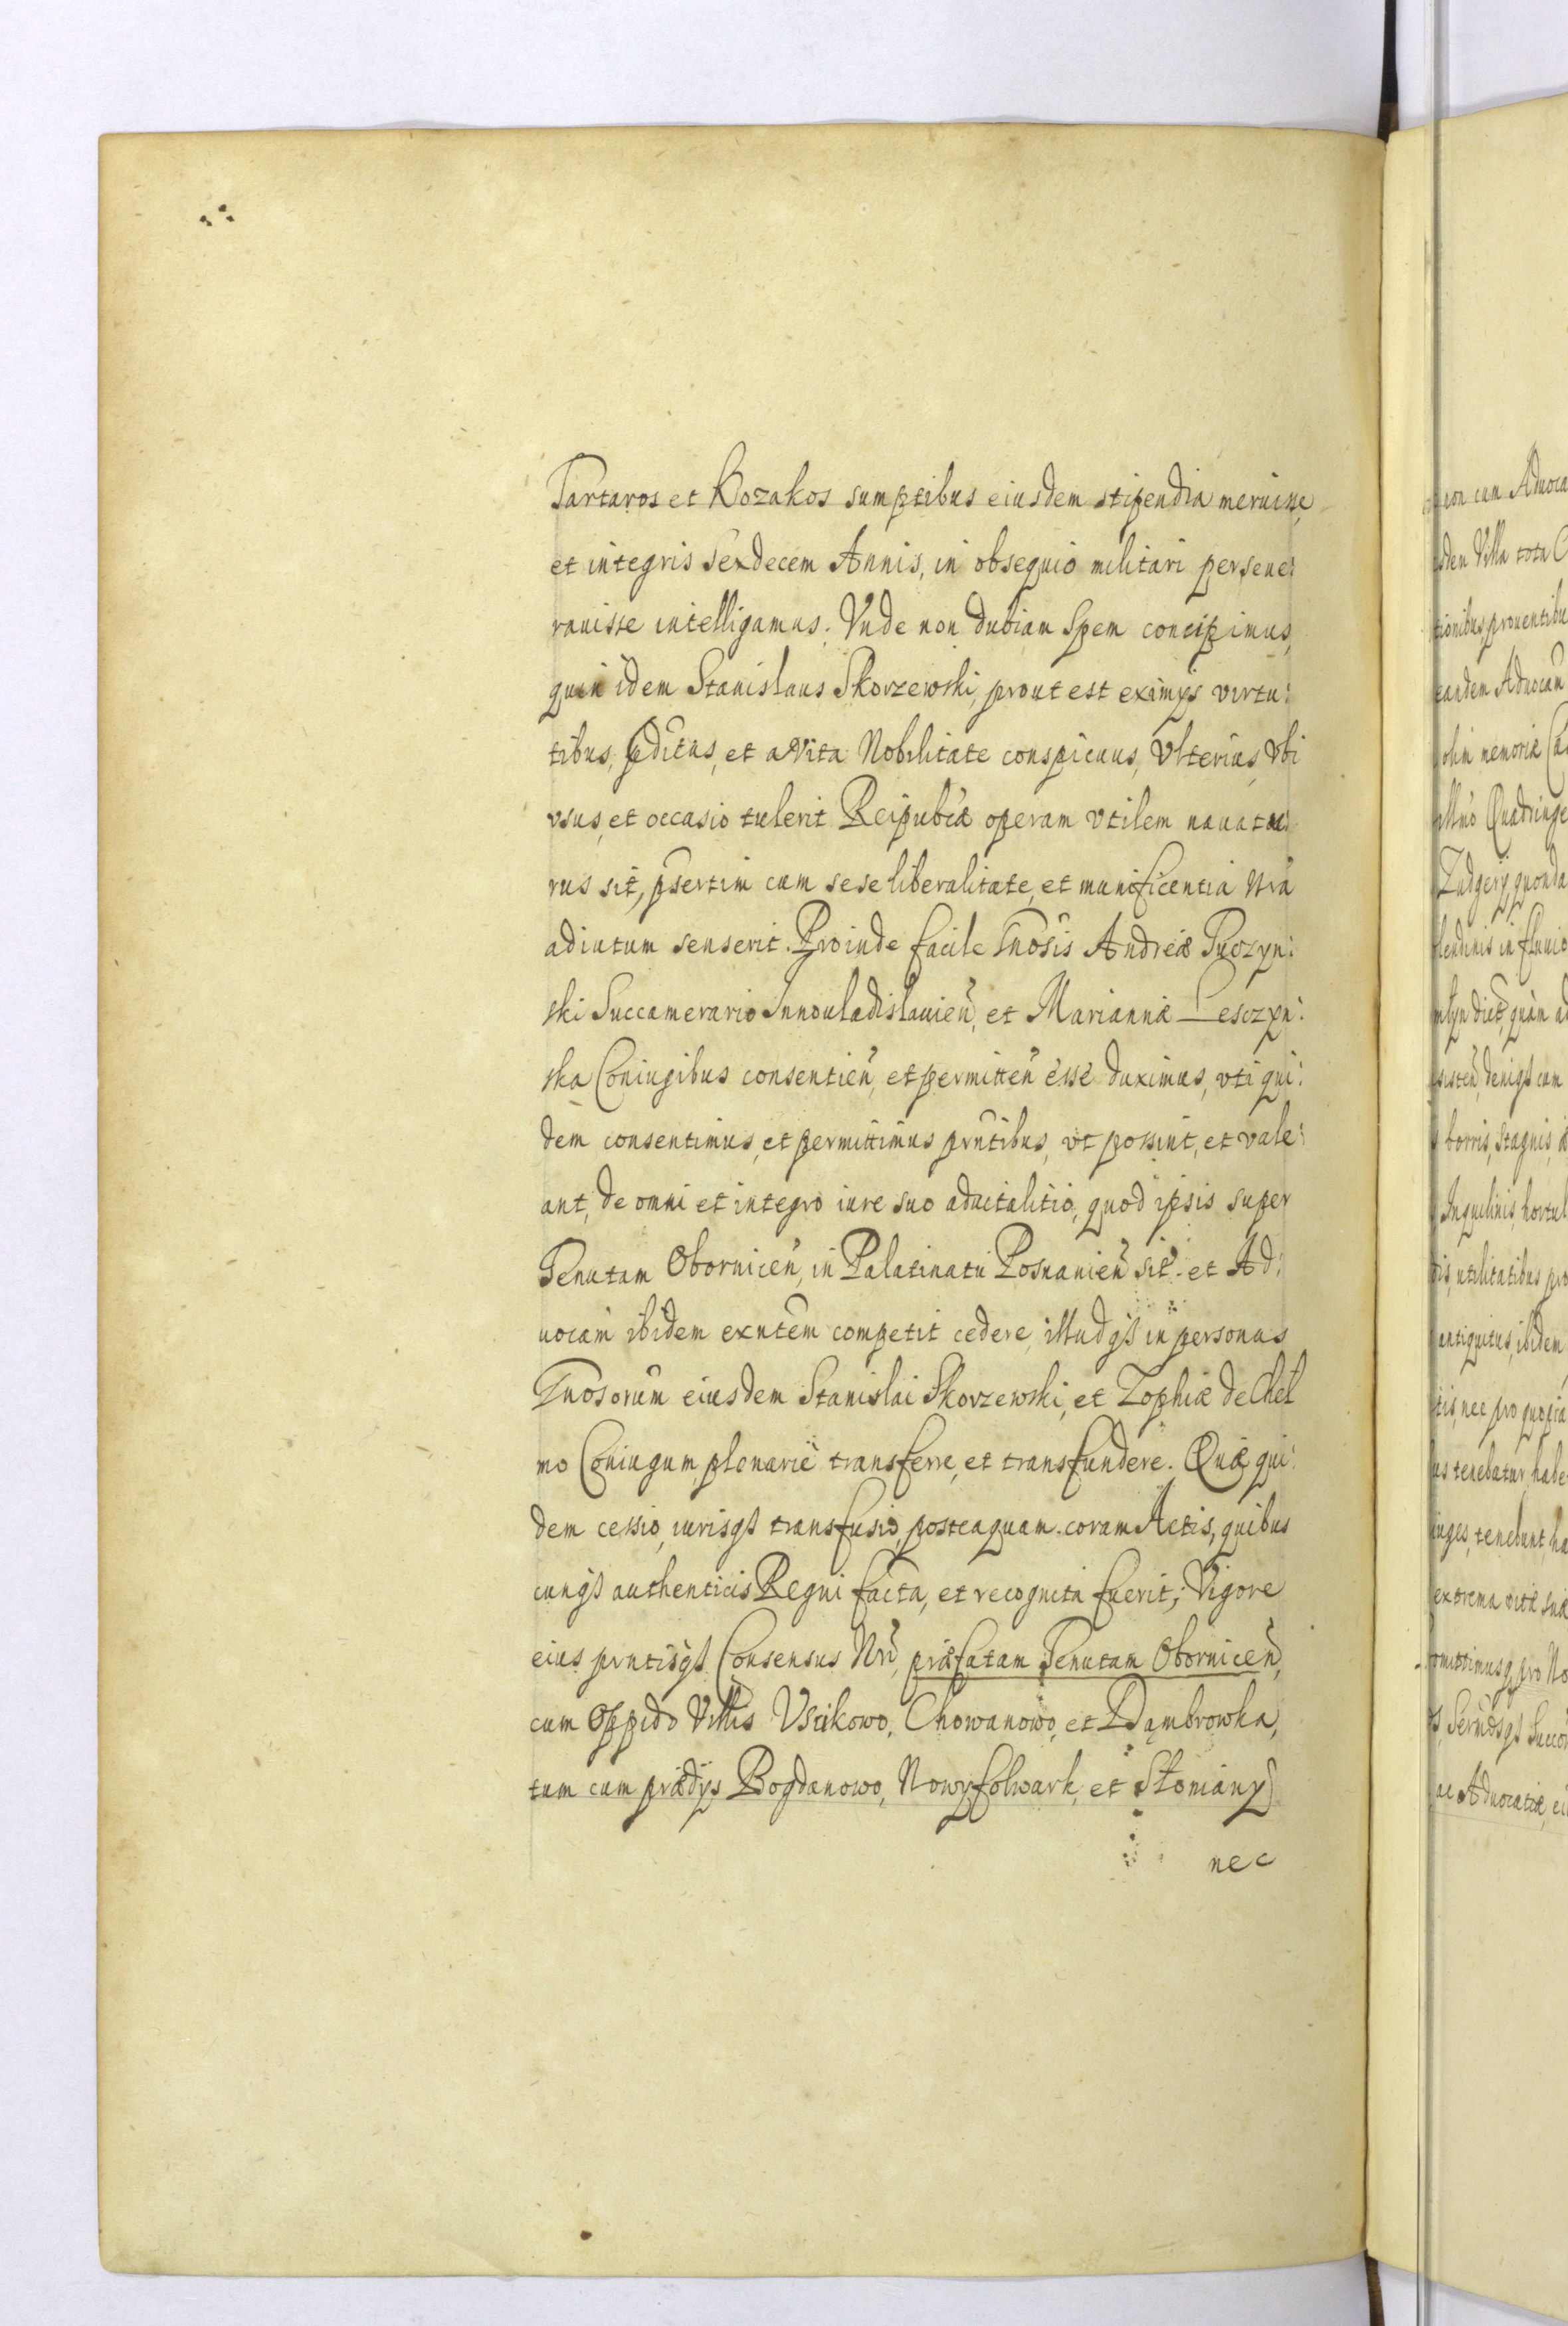 Tartaros et Kozakos sumptibus eiusdem stipendia meruisse
et integris sexdecem Annis, in obsequio militari perseue:
rauisse intelligamus. Vnde non dubiam spem concipimus,
quin idem Stanislaus Skorzewski, prout est eximijs virtu:
tibus, pditus, et avita Nobilitate conspicuus, Vlterius, Vbi
vsus, et occasio tulerit Reipubcæ operam vtilem nauatu:
rus sit, psertim cum sese liberalitate, et munificentia Nrã
adiutum senserit. Proinde facile Gnosis Andreæ Twozyn:
ski Succamerario Innouladislauien̄, et Mariannæ Lesczyn:
ska Coniugibus consentien̄, et permitten̄ esse duximus, vti qui:
dem consentimus, et permittimus prñtibus, vt possint, et vale:
ant, de omni et integro iure suo aduitalitio, quod ipsis super
Tenutam Obornicen̄, in Palatinatu Posnanien̄ sit. et Ad:
uocam̃ ibidem exñtem competit cedere, illudqȝ in personas
Gnosorum eiusdem Stanislai Skorzewski, et Zophiæ de Chel
mo Coniugum, plenariè transferre, et transfundere. Quæ qui:
dem cessio, iurisqȝ transfusio, posteaquam coram Actis, quibus
cunqȝ authenticis Regni facta, et recognita fuerit; Vigore
eius prñtisqȝ Consensus Nrĩ, præfatam Tenutam Obornicen̄,
cum Oppido Villis Vscikowo, Chowanowo, et Dąmbrowka,
tum cum prædijs Bogdanowo, Nowyfolwark, et Słoniany
nec
non cum Aduoca
sdem Villa tota C
tionibus prouentibu
eandem Aduocam̃
olim memoriæ Ca
Quadringe
quonda
lendinis in fluuio
mlyn dict, quàm ad
sisten̄, deniqȝ cum
borris, Stagnis, æ
Inquilinis, hortul
is, utilitatibus pro
antiquitus, ibidem
tis, nec pro quopia
us tenebatur, habe
iuges, tenebunt ha
extrema vitæ suæ
omittimusqȝ pro No
Serñdsqȝ Succo
ac Aduocatiæ, ei